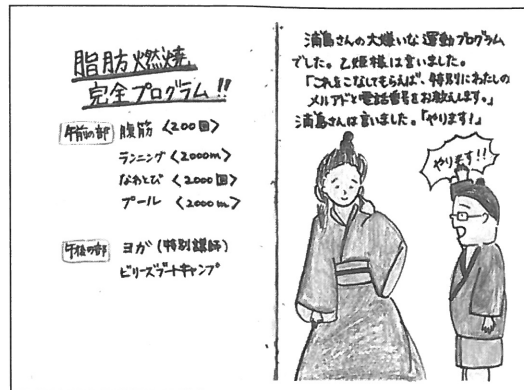 脂肪燃焼
完全プログラム!!
午前の部 腹筋〈200回〉
ランニング〈2000m〉
なわとび〈2000回〉
プール〈2000m〉
午後の部 ヨガ(特別講師)
ビリーズブートキャンプ
浦島さんの大嫌いな運動プログラム
でした。乙姫様は言いました。
「これをこなしてもらえば、特別にわたしの
メルアドと電話番号をお教えします。」
浦島さんは言いました。「やります!」
やります!!